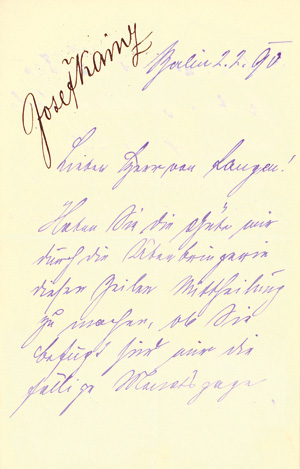 Josef Kainz
Berlin 2.2.90
Lieber Herr von Langen!
Haben Sie die Güte mir
durch die Überbringerin
dieser Zeilen Mittheilung
zu machen, ob Sie
befugt sind mir die
fällige Monatsgage